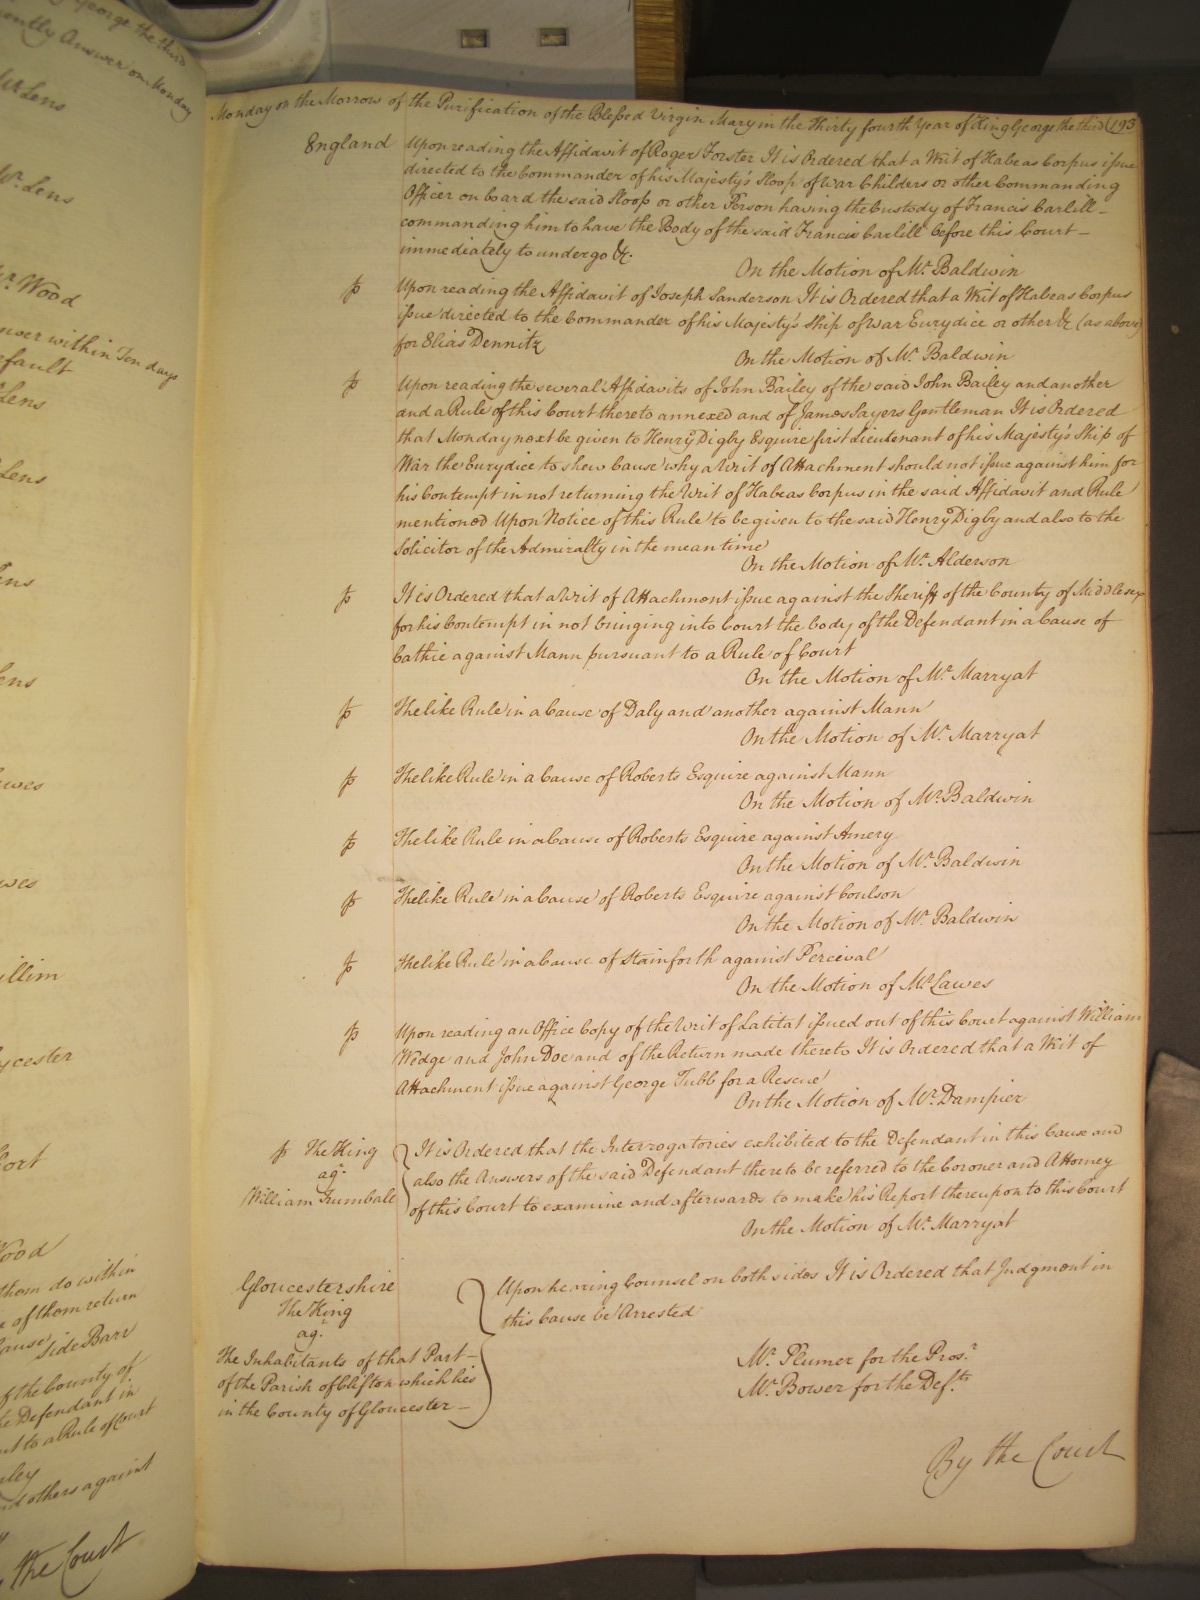 George the third
Answer on Monday
Mr. Lens
Mr. Lens
Mr. Wood
within Ten days
fault
Lens
Lens
ens
ens
illim
Wood
them do within
of them return
Side Barr
of the County of
Defendant in
to a Rule of Court
others against
the Court
Monday on the Morrow of the Purification of the Blessed Virgin Mary in the Thirty fourth Year of King George the third (193
England
Upon reading the Affidavit of Roger Forster It is Ordered that a Writ of Habeas Corpus issue
directed to the Commander of his Majesty's Sloop of War Childers or other Commanding
Officer on board the said Sloop or other Person having the Custody of Francis Carlill -
commanding him to have the Body of the said Francis Carlill before this Court -
immediately to undergo &c.
On the Motion of Mr. Baldwin
Upon reading the Affidavit of Joseph Sanderson It is Ordered that a Writ of Habeas Corpus
issue directed to the Commander of his Majesty's Ship of War Eurydice or other &c (as above)
for Elias Dennitz
On the Motion of Mr. Baldwin
Upon reading the several Affidavits of John Bailey of the said John Bailey and another
and a Rule of this Court thereto annexed and of James Sayers Gentleman It is Ordered
that Monday next be given to Henry Digby Esquire first Lieutenant of his Majesty's Ship of
War the Eurydice to shew Cause why a Writ of Attachment should not issue against him for
his Contempt in not returning the Writ of Habeas Corpus in the said Affidavit and Rule
mentioned Upon Notice of this Rule to be given to the said Henry Digby and also to the
Solicitor of the Admiralty in the mean time
On the Motion of Mr. Alderson
It is Ordered that a Writ of Attachment issue against the Sheriff of the County of Middlesex
for his Contempt in not bringing into Court the body of the Defendant in a Cause of
Cathie against Mann pursuant to a Rule of Court
On the Motion of Mr. Marryat
The like Rule in a Cause of Daly and another against Mann
On the Motion of Mr. Marryat
The like Rule in a Cause of Roberts Esquire against Mann
On the Motion of Mr. Baldwin
The like Rule in a Cause of Roberts Esquire against Amery
On the Motion of Mr. Baldwin
The like Rule in a Cause of Roberts Esquire against Coulson
On the Motion of Mr. Baldwin
The like Rule in a Cause of Stainforth against Perceval
On the Motion of Mr. Lawes
Upon reading an Office Copy of the Writ of Latitat issued out of this Court against William
Wedge and John Doe and of the Return made thereto It is Ordered that a Writ of
Attachment issue against George Tubb for a Rescue
On the Motion of Mr. Dampier
The King
agt.
William Trumball
It is Ordered that the Interrogatories exhibited to the Defendant in this Cause and
also the Answers of the said Defendant thereto be referred to the Coroner and Attorney
of this Court to examine and afterwards to make his Report thereupon to this Court
On the Motion of Mr. Marryat
Gloucestershire
The King
agt.
The Inhabitants of that Part -
of the Parish of Clifton which lies
in the County of Gloucester -
Upon hearing Counsel on both sides It is Ordered that Judgment in
this Cause be Arrested
Mr. Plumer for the Prosr.
Mr. Bower for the Defts.
By the Court